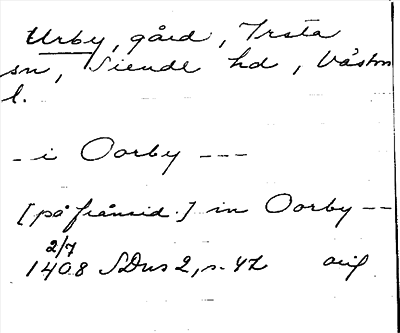 Urby, gård, Irsta
sn, Siende hd, Västm
l.
- i Oorby ---
[på frånsid.] in Oorby --
2/7
1408 SDns 2, s. 42 orig